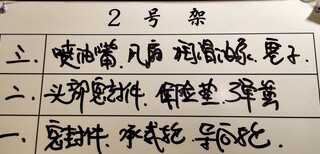 2号架
三. 喷油嘴. 风扇. 润滑油泵. 电子.
二. 头部密封件. 保险垫. 弹簧
一. 密封件. 承载轮. 导向轮.